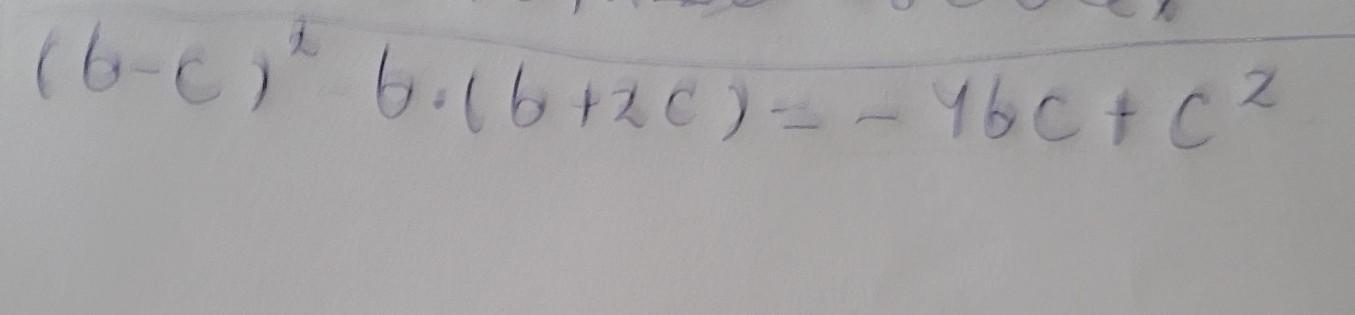 (b-c)² b.(b+2c)=-4bc+c²